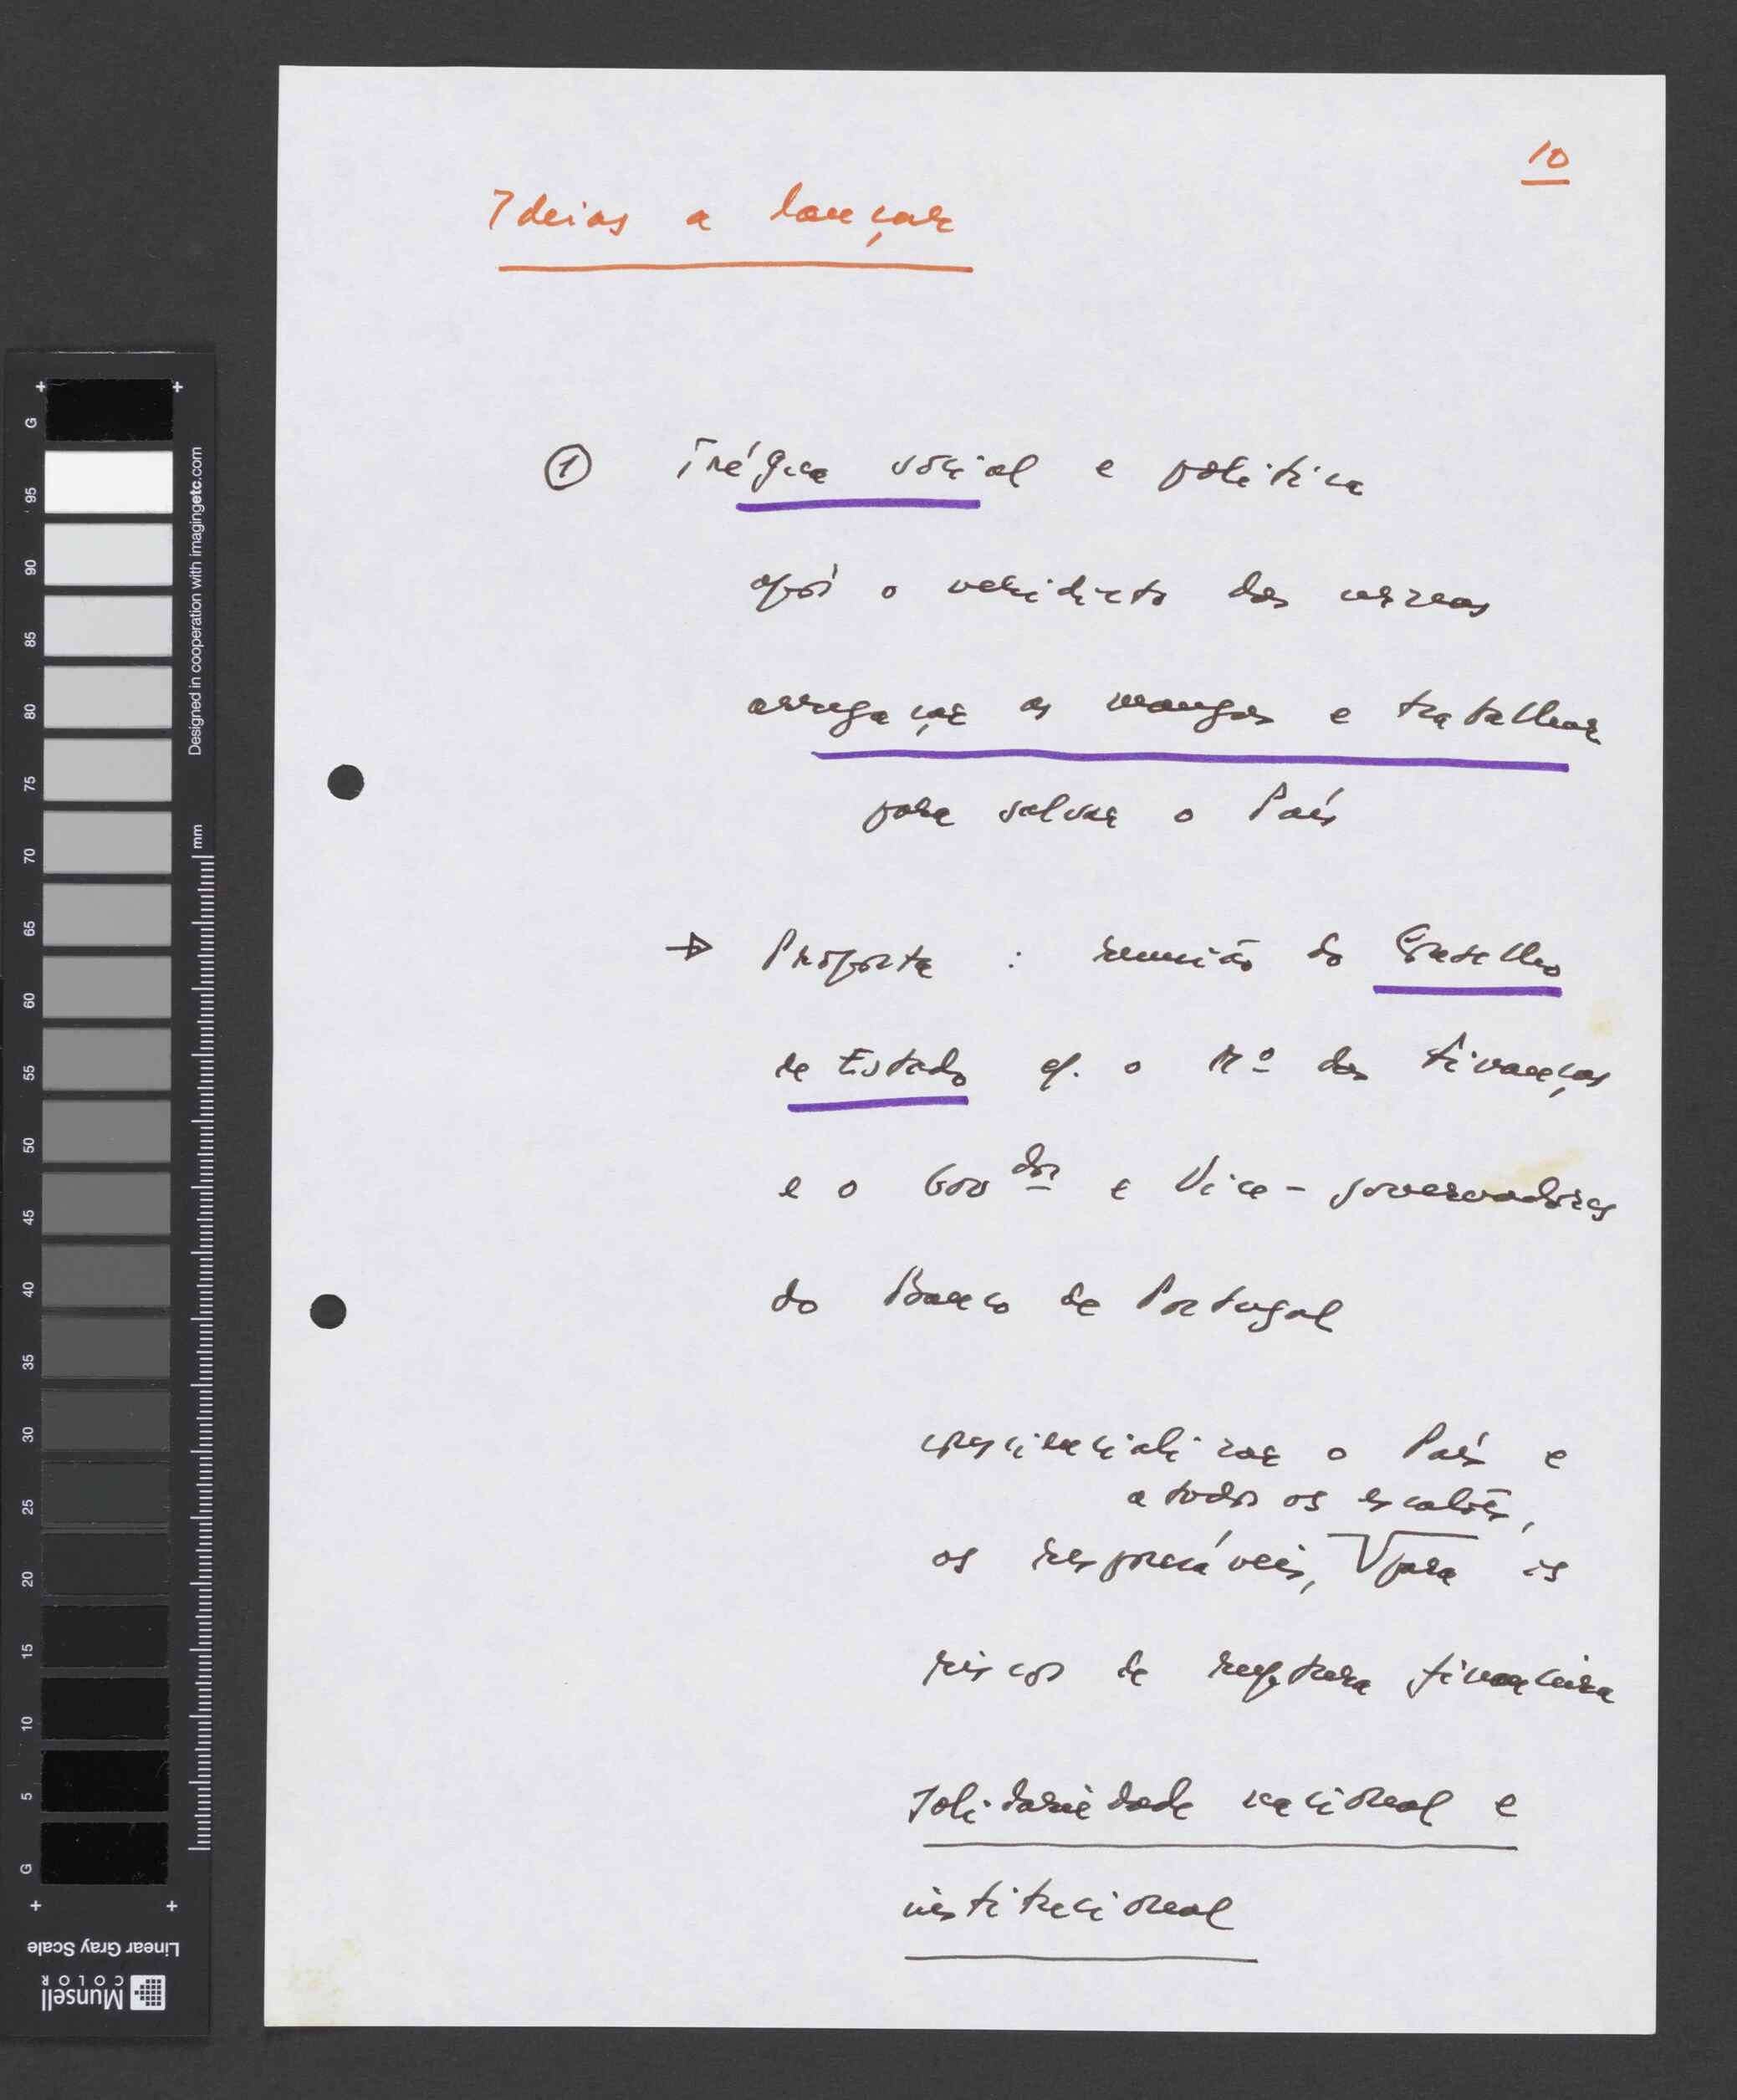 10
Ideias a lançar
① Trégua social e política
após o veridicto das urnas
arregaçar as mangas e trabalhar
para salvar o País
→ Proposta : reunião do Conselho
de Estado c/. o Mº das Finanças
e o Gov dor e Vice-governadores
do Banco de Portugal
consciencializar o País e
a todos os escalões,
os responsáveis, para os
riscos de ruptura financeira
Solidariedade nacional e
institucional
G
95
90
85
80
75
70
65
60
55
50
45
40
35
30
25
20
15
10
5
G
Designed in cooperation with imagingetc.com
mm
Linear Gray Scale
Munsell
COLOR